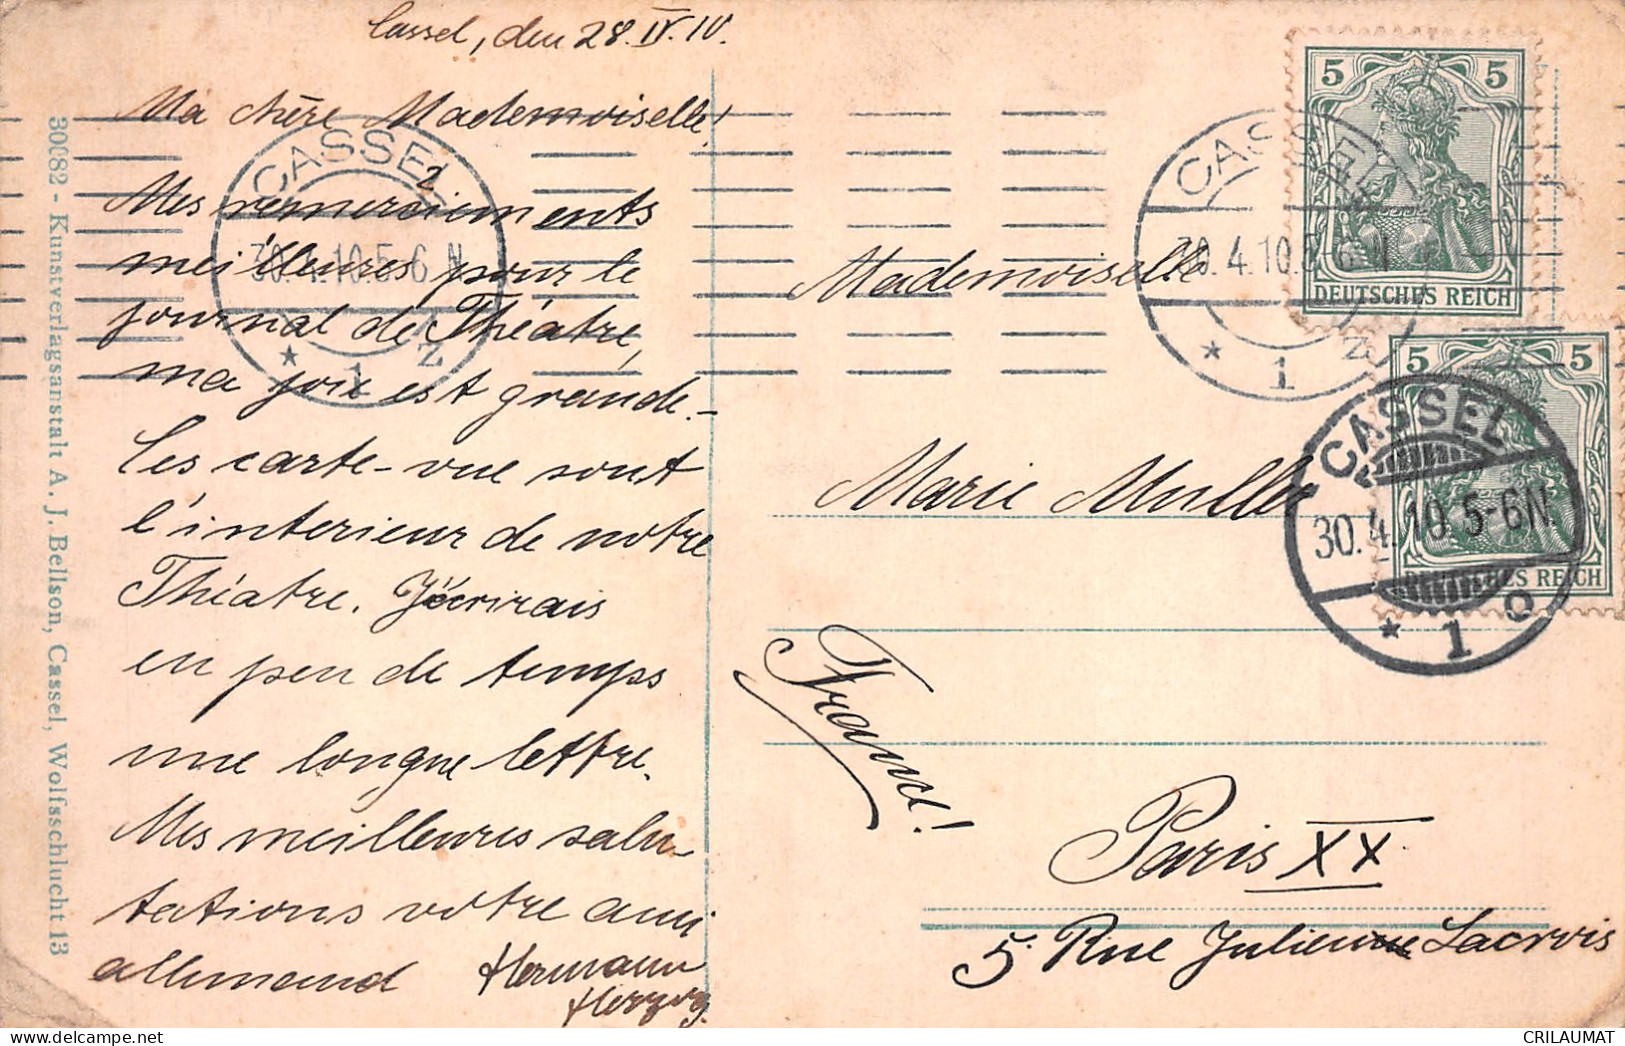 Cassel, den 28. IV. 10.
Ma chère Mademoiselle!
Mes remerciements
meilleures pour le
journal de Théatre,
ma joie est grande.-
Ces carte-vue sont
l'interieur de notre
Théatre. J'écrirais
en peu de temps
une longue lettre.
Mes meilleures salu-
tations votre ami
allemand Hermann
Herzog.
30082 - Kunstverlagsanstalt A. J. Bellson, Cassel, Wolfsschlucht 13
CASSEL
30.4.10.5-6 N
* 1 z
CASSEL
30.4.10.5-6 N
* 1 z
5 5
DEUTSCHES REICH
5 5
DEUTSCHES REICH
CASSEL
30.4.10.5-6N.
* 1 o
Mademoiselle
Marie Muller
Franc!
Paris XX
5. Rue Julienne Lacrois
delcampe.net
CRILAUMAT